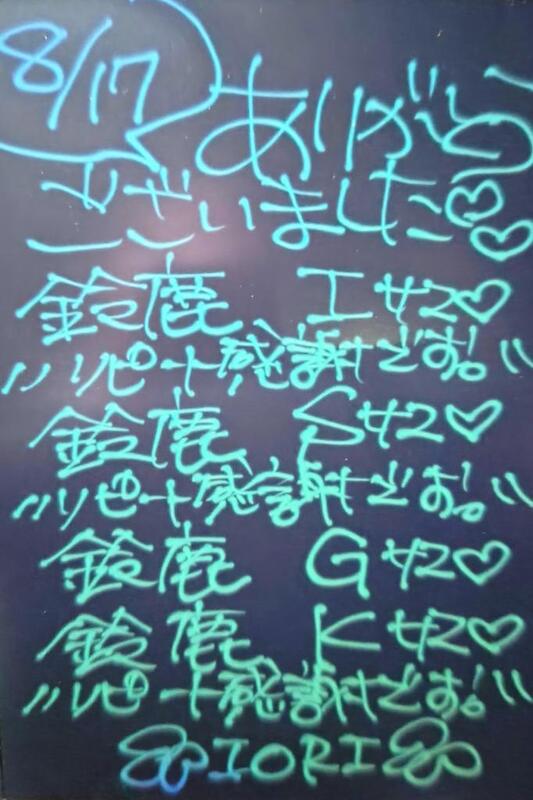 8/17
ありがとう
ございました♡♡
鈴鹿 Iサマ♡
〃リピート感謝です!!〃
鈴鹿 Sサマ♡
〃リピート感謝です!!〃
鈴鹿 Gサマ♡
鈴鹿 Kサマ♡
〃リピート感謝です!!〃
IORI